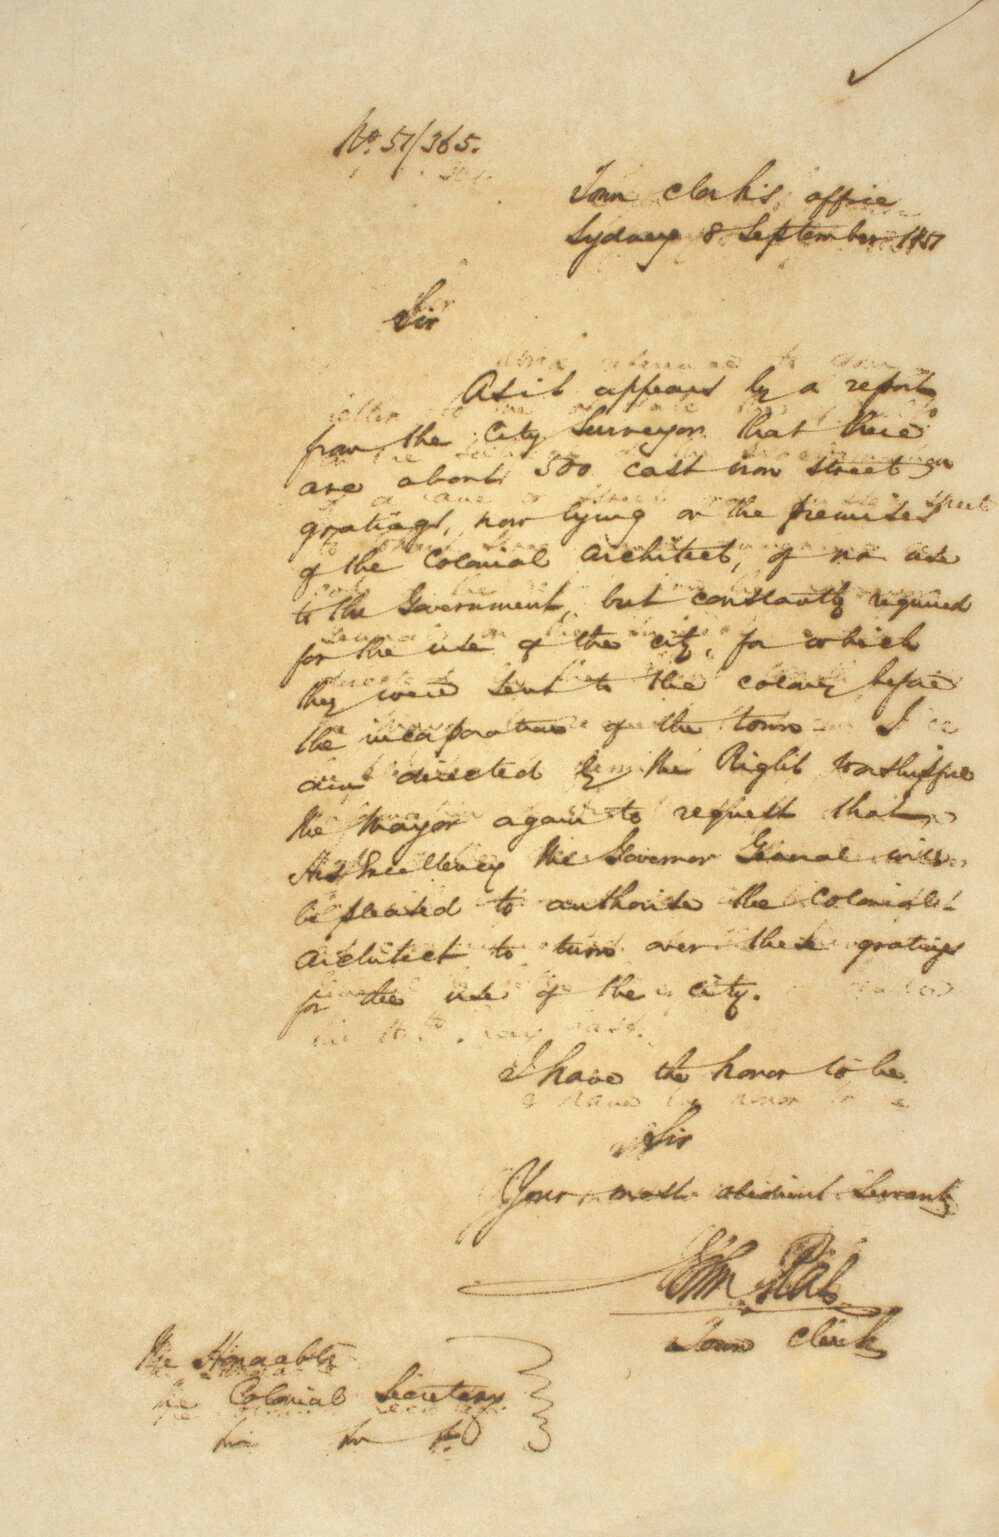 No. 57/365.
Town Clerk's office
Sydney 8 September 1857
Sir
As it appears by a report
from the City Surveyor that there
are about 500 cast iron street
gratings, now lying on the premises
of the Colonial Architect, of no use
to the Government, but constantly required
for the use of the city, for which
they were sent to the colony before
the incorporation of the town I
am directed by the Right Worshipful
the Mayor again to request that
His Excellency the Governor General will
be pleased to authorise the Colonial
Architect to turn over these gratings
for the use of the city.
I have the honor to be
Sir
Your most obedient Servant
John
Town Clerk
The Honorable
The Colonial Secretary